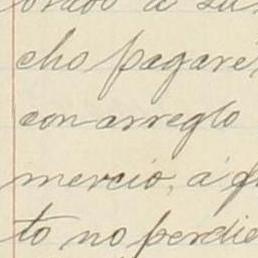 á su
cho pagaré,
con arreglo
mercio, á
to no perdie